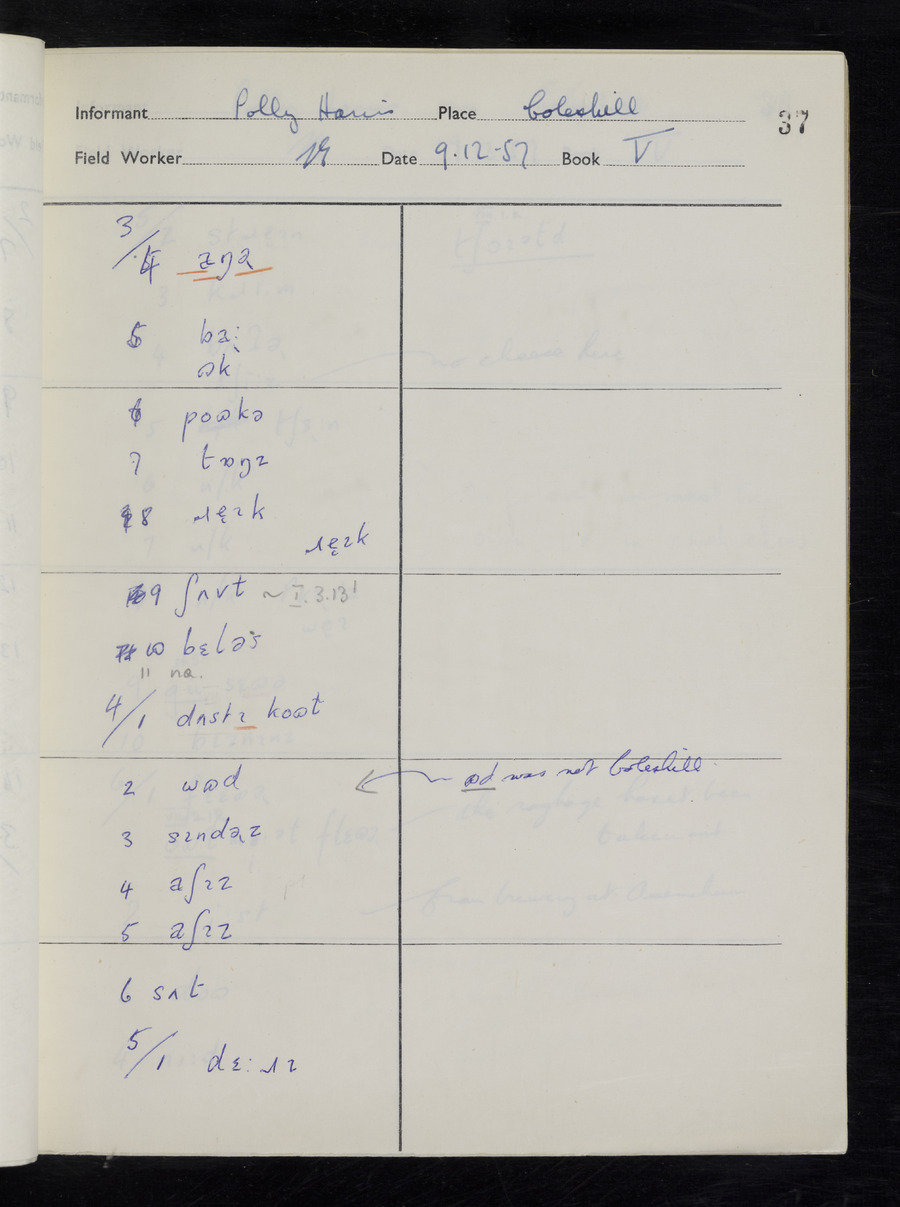 Informant Polly Harris Place Coleshill 37
Field Worker Date 9.12-57 Book V
3/4 aŋə
5 ba:
ɷk
6 poɷkə
7 tɒŋz
8 ɹɛɪk
ɹɛɪk
9 ʃʌvt ~ I.3.13
10 bɛləs
11 na.
4/1 dʌstɪ koɷt
2 wɷd ɷd was not Coleshill
3 sɪndəz
4 aʃɪz
5 aʃɪz
6 sʌt
5/1 dɛ:ɹɪ